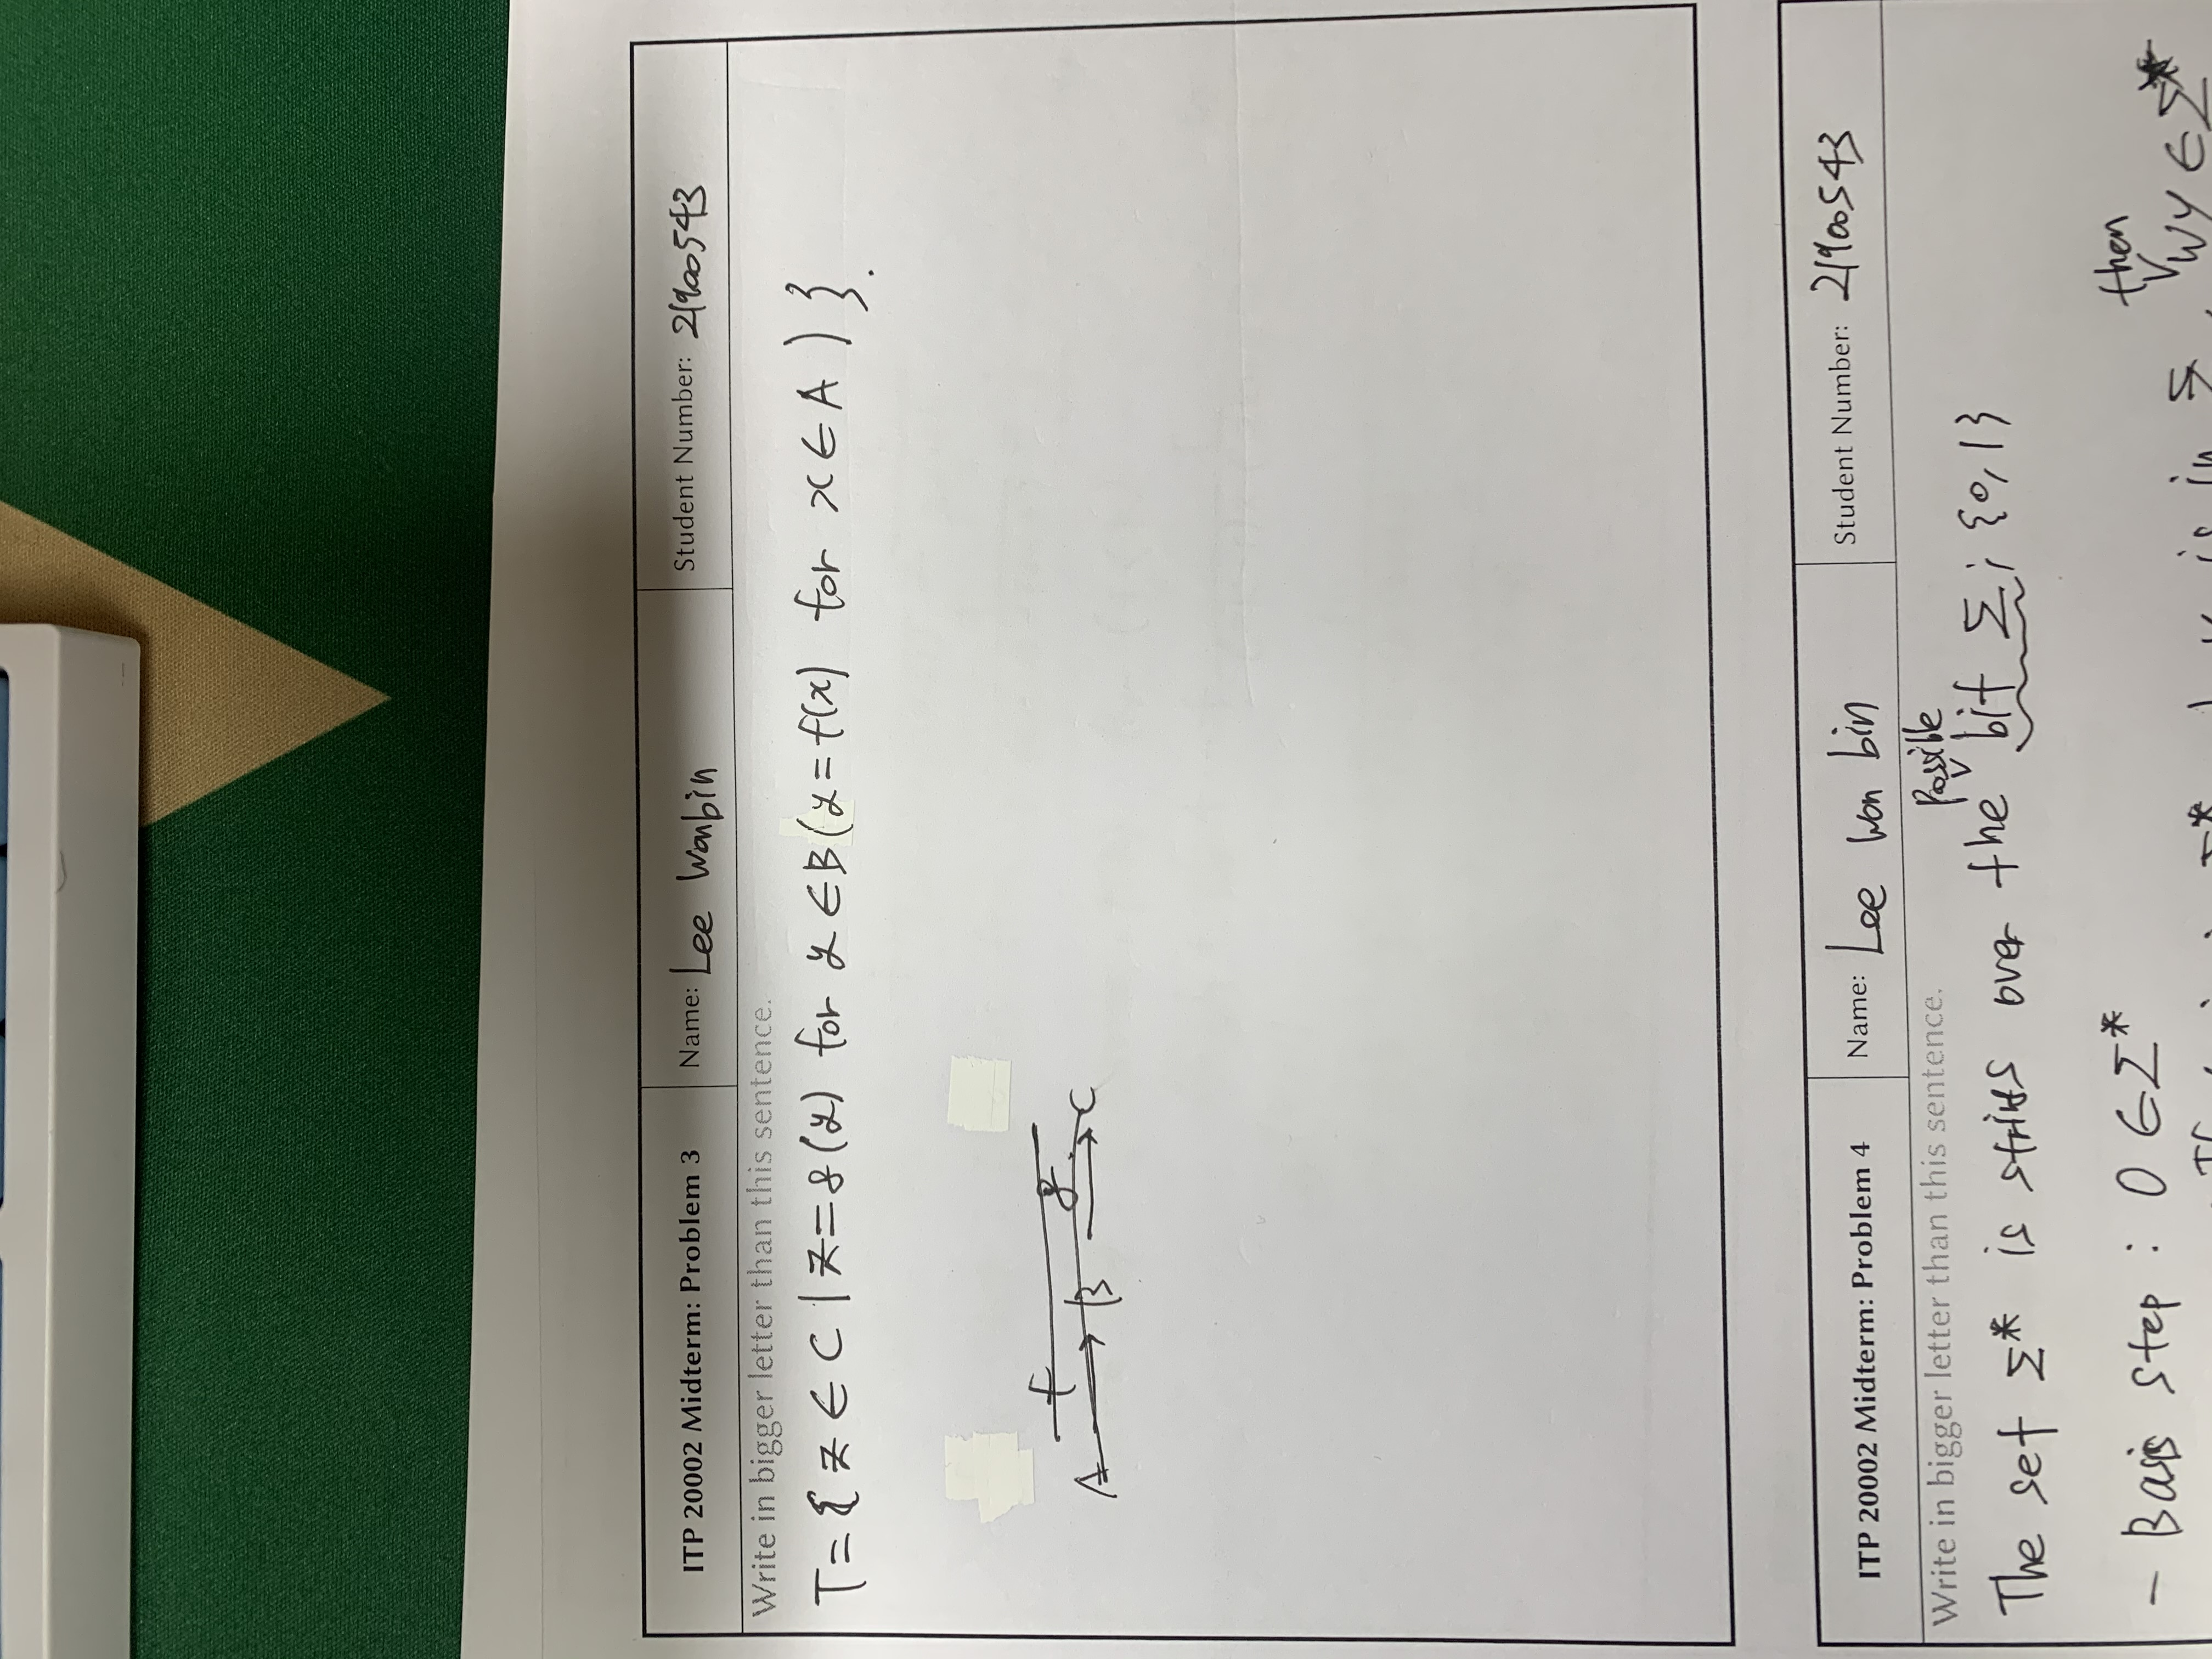 ITP 20002 Midterm: Problem 3 Name: Lee Wonbin Student Number: 21900543
Write in bigger letter than this sentence.
T = { z ∈ C | z = g(y) for y ∈ B (y = f(x) for x ∈ A ) }.
f g
A → B → C
ITP 20002 Midterm: Problem 4 Name: Lee Won bin Student Number: 21900543
Write in bigger letter than this sentence.
possible
The set Σ* is over the bit Σ; {0,1}
then
- Basis step : 0 ∈ Σ*
is in wy ∈ Σ*